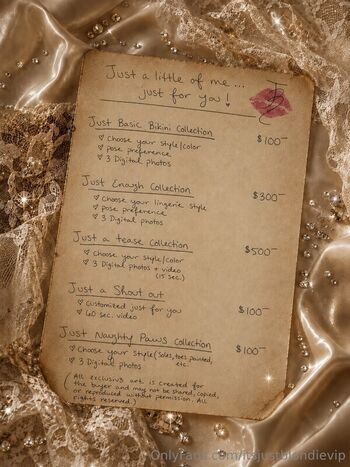 Just a little of me ...
just for you!
JB
Just Basic Bikini Collection $100-
♡ Choose your style/color
♡ pose preference
♡ 3 Digital photos
Just Enough Collection $300-
♡ Choose your lingerie style
♡ pose preference
♡ 3 Digital photos
Just a tease Collection $500-
♡ Choose your style/color
♡ 3 Digital photos + video
(15 sec.)
Just a Shout out $100-
♡ Customized just for you
♡ 60 sec. video
Just Naughty Paws Collection $100-
♡ Choose your Style (Soles, toes, painted,
etc.
♡ 3 Digital photos
(All exclusive art is created for
the buyer and may not be shared, copied,
or reproduced without permission. All
rights reserved.)
OnlyFans.com/itsjustblondievip